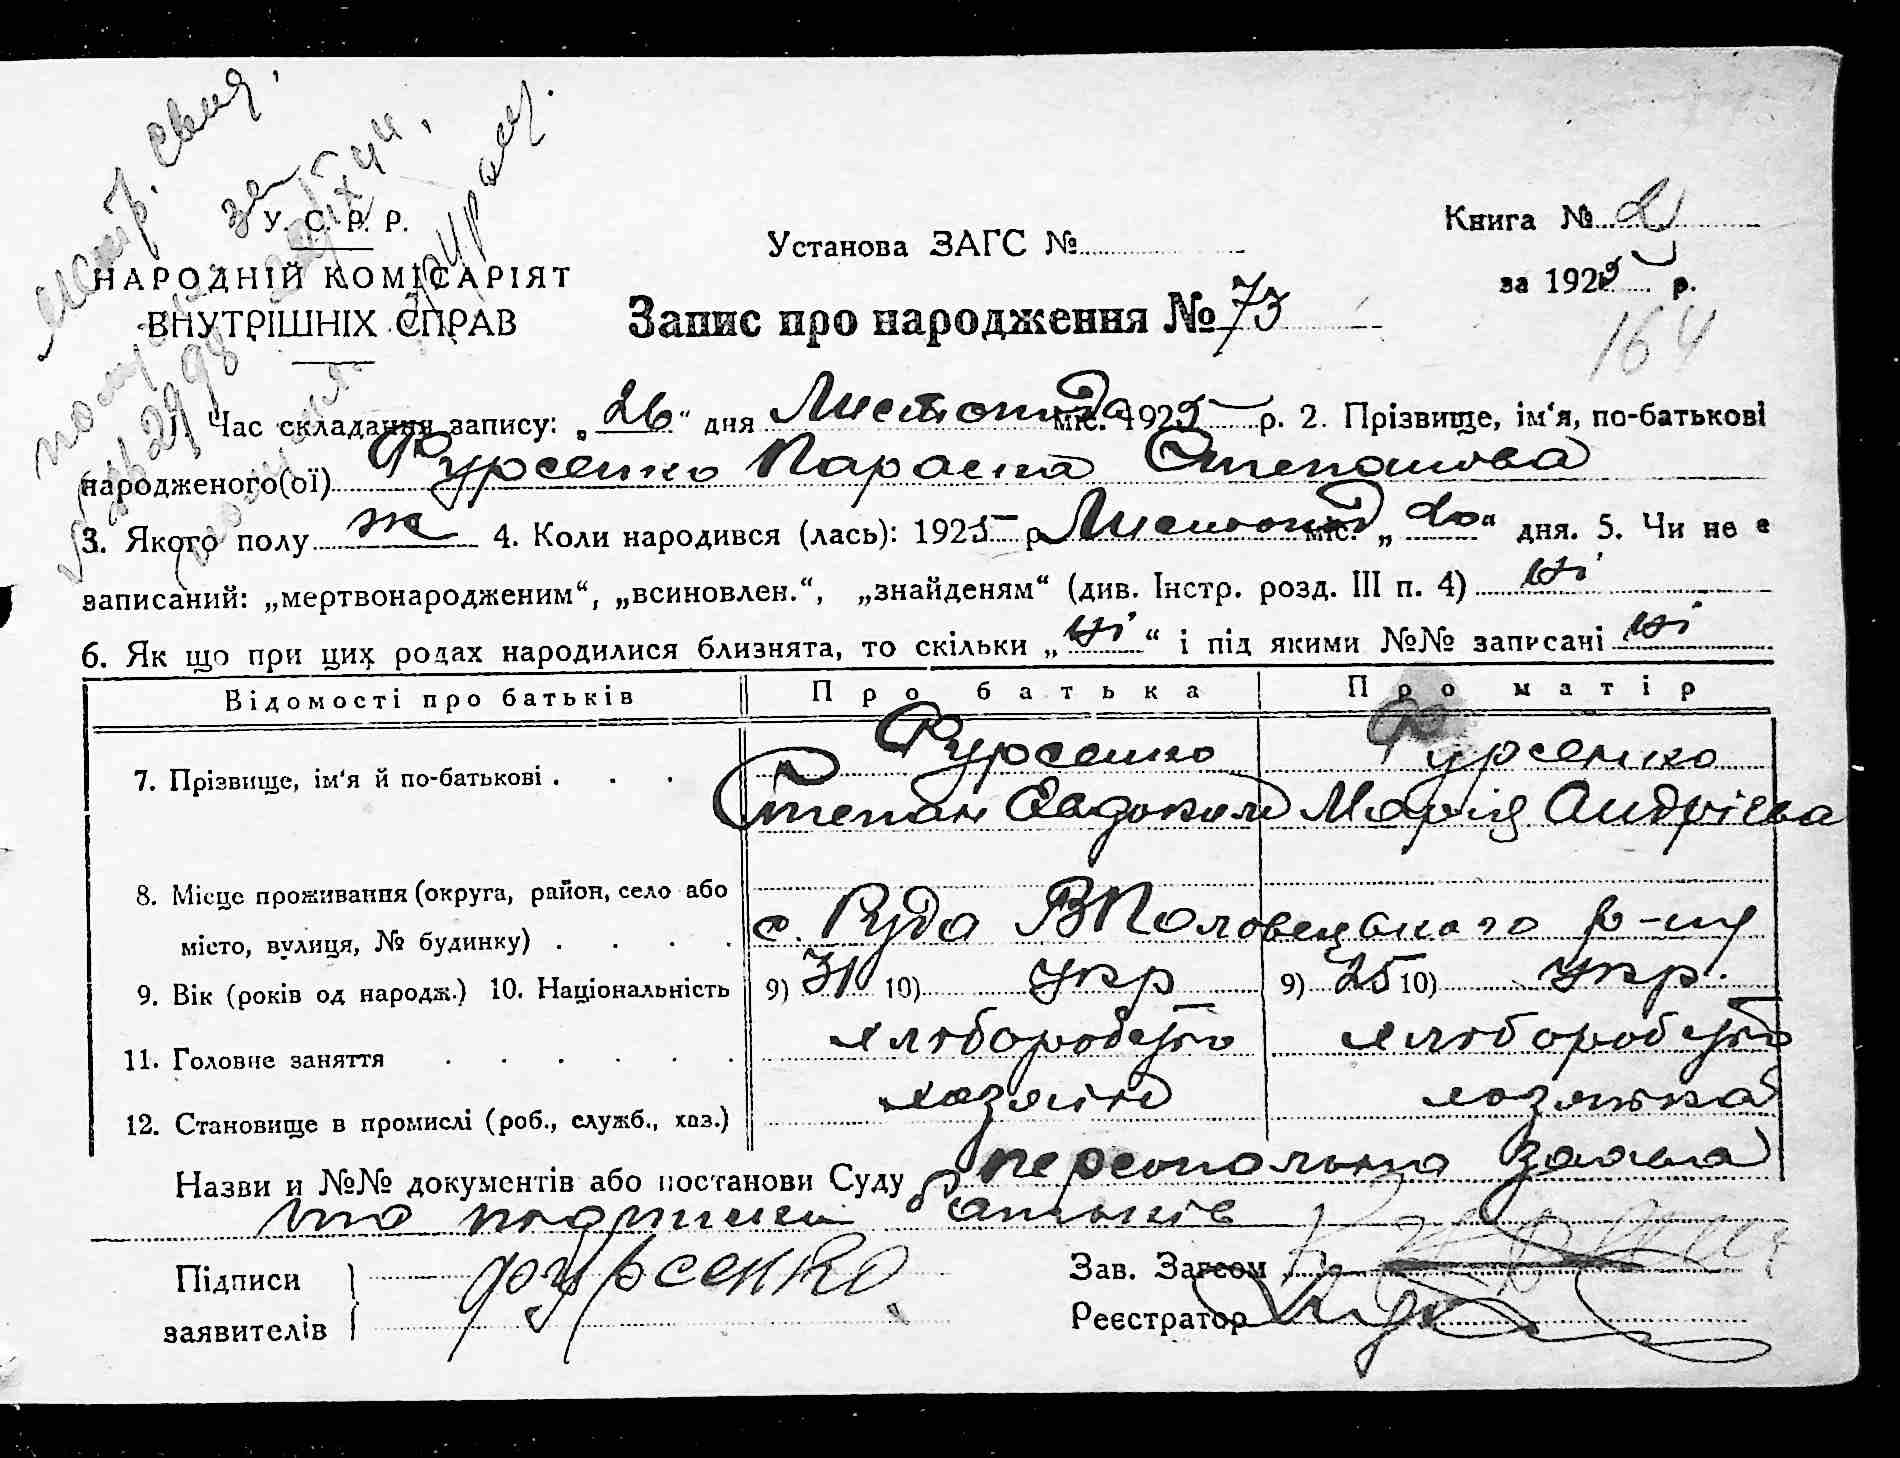 У. С. Р. Р.
НАРОДНІЙ КОМІСАРІЯТ
ВНУТРІШНІХ СПРАВ
Установа ЗАГС №
Запис про народження № 73
Книга № 2
за 1925 р.
164
1. Час складання запису: „26“ дня Листопада міс. 1925 р. 2. Прізвище, ім‘я, по-батькові
народженого(ої) Фурсенко Параска Степанова
3. Якого полу ж 4. Коли народився (лась): 1925 р. Листопад міс. „20“ дня. 5. Чи не є
записаний: „мертвонародженим“, „всиновлен.“, „знайденям“ (див. Інстр. розд. III п. 4) ні
6. Як що при цих родах народилися близнята, то скільки „ні“ і під якими №№ записані ні
Відомості про батьків Про батька Про матір
7. Прізвище, ім‘я й по-батькові . . . Фурсенко Фурсенко
Степан Євдоким Марія Андрієва
8. Місце проживання (округа, район, село або
місто, вулиця, № будинку) . . . . с. Руда ВПоловецького р-ну
9. Вік (років од народж.) 10. Національність 9) 31 10) укр 9) 25 10) укр.
11. Головне заняття . . . . . . хліборобство хліборобство
12. Становище в промислі (роб., служб., хаз.) хозяїн хозяйка
Назви и №№ документів або постанови Суду персональна заява
та підписи батьків
Підписи
заявителів
Фурсенко
Зав. Загсом
Реєстратор